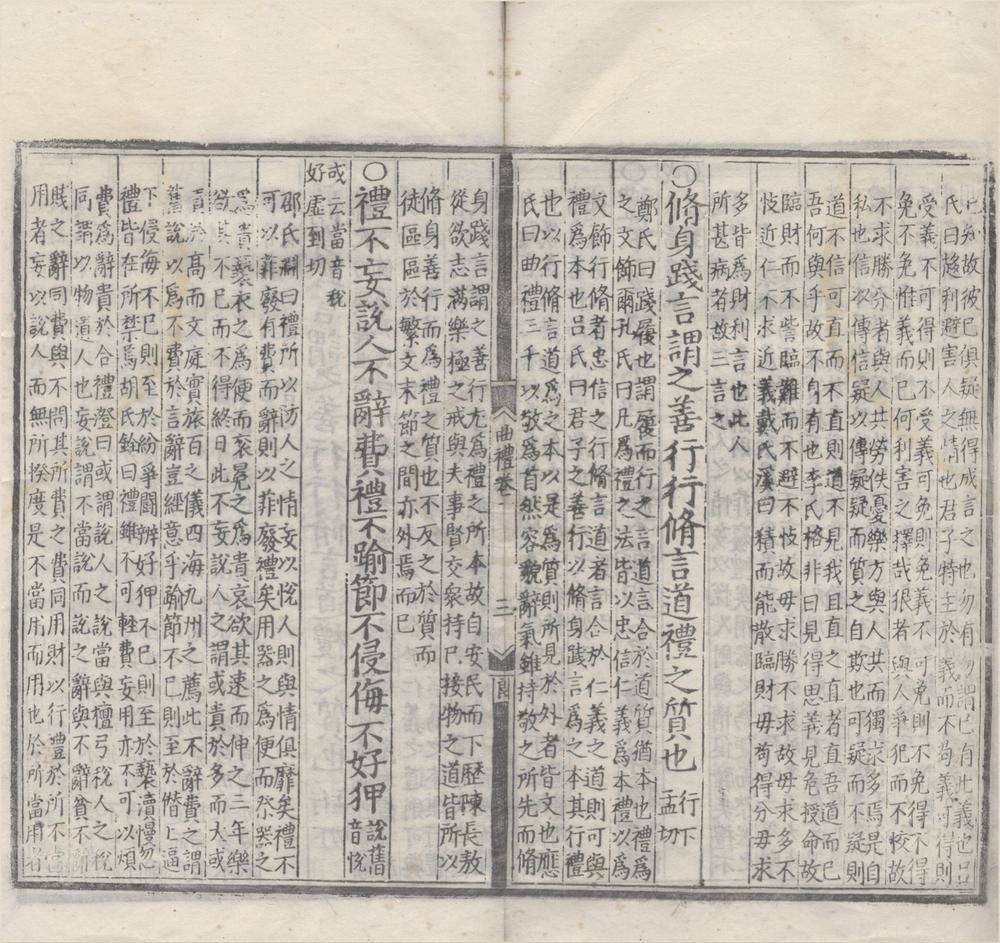 已矣故彼已俱疑無得成言之也勿有勿謂已有此義也呂
氏曰趍利避害人之情也君子特主於義而不苟義可得則
受義不可得則不受義可免則免義不可免則不免得不得
免不免惟義而已何利害之擇哉很者與人爭犯而不校故
不求勝分者與人共勞佚憂樂方與人共而獨求多焉是自
私也信以傳信疑以傳疑疑而質之自欺也可疑而不疑則
道不信可直而不直則道不見我且直之直者直吾道而已
吾何與乎故不自有也李氏格非曰見得思義見危授命故
臨財而不訾臨難而不避不忮故毋求勝不求故毋求多不
忮近仁不求近義戴氏溪曰積而能散臨財毋苟得分毋求
多皆爲財利言也此人
所甚病者故三言之
○脩身踐言謂之善行行脩言道禮之質也 行下孟切
鄭氏曰踐履也謂履而行之言道言合於道質猶本也禮爲
之文飾爾孔氏曰凡爲禮之法皆以忠信仁義爲本禮以爲
文飾行脩者忠信之行脩言道者言合於仁義之道則可與
禮爲本也呂氏曰君子之善行以脩身踐言爲之本其行禮
也以行脩言道爲之本以是爲質則所見於外者皆文也應
氏曰曲禮三千以敬爲首然容貌辭氣雖持敬之所先而脩
曲禮卷一
三
身踐言謂之善行尤爲禮之所本故自安民而下歷陳長敖
從欲志滿樂極之戒與夫事賢交衆持已接物之道皆所以
脩身善行而爲禮之質也不反之於質而
徒區區於繁文末節之間亦外焉而已
○禮不妄說人不辭費禮不踰節不侵侮不好狎 說舊音悅
或云當音稅
好虛到切
邵氏淵曰禮所以防人之情妄以悅人則與情俱靡矣禮不
可以菲廢有費而辭則以菲廢禮矣用器之爲便而祭器之
爲貴褻衣之爲便而衮冕之爲貴哀欲其速而伸之三年樂
欲其不已而不得終日此不妄說人之謂或貴於多而大或
貴於高而文庭實旅百之儀四海九州之薦此不辭費之謂
舊說以爲不費於言辭豈經意乎踰節不已則至於僭上逼
下侵侮不已則至於紛爭鬬辨好狎不已則至於褻瀆慢忽
禮皆在所禁焉胡氏銓曰禮雖不可輕費妄用亦不可以煩
費爲辭貴於合禮澄曰或謂說人之說當與檀弓稅人之稅
同謂以物遺人也妄說謂不當說而說之辭與不辭貧不辭
賤之辭同費與不問其所費之費同用財以行禮於所不當
用者妄以說人而無所揆度是不當用而用也於所當用者